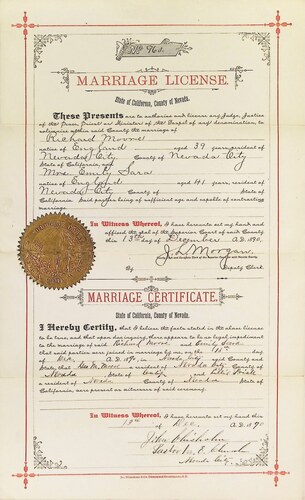 MARRIAGE LICENSE.
State of California, County of Nevada.
These Presents are to authorize and license any Judge, Justice
of the Peace, Priest or Minister of the Gospel of any denomination, to
solemnize within said County the marriage of
Richard Moore
native of England aged 39 years, resident of
Nevada City County of Nevada City
State of California, and
Mrs. Emily Sara
native of England aged 41 years, resident of
Nevada City County of
State of California. Said parties being of sufficient age and capable of contracting
marriage.
In Witness Whereof, I have hereunto set my hand and
affixed the seal of the Superior Court of said County
this 13th day of December A.D. 1890.
J. L. Morgan,
Deputy Clerk.
MARRIAGE CERTIFICATE.
State of California, County of Nevada.
I Hereby Certify, that I believe the facts stated in the above license
to be true, and that upon due inquiry there appears to be no legal impediment
to the marriage of said Richard Moore and Emily Sara
that said parties were joined in marriage by me, on the day
of Dec. A.D. 1890, in Nevada City aged County and
State, that Moore a resident of Nevada City County of
Nevada State of Calif. and
a resident of Nevada County of Nevada State of
California, were present as witnesses of said ceremony.
In Witness Whereof, I have hereunto set my hand this
Dec. A.D. 1890
John Chisholm
Pastor M. E. Church
Nevada City